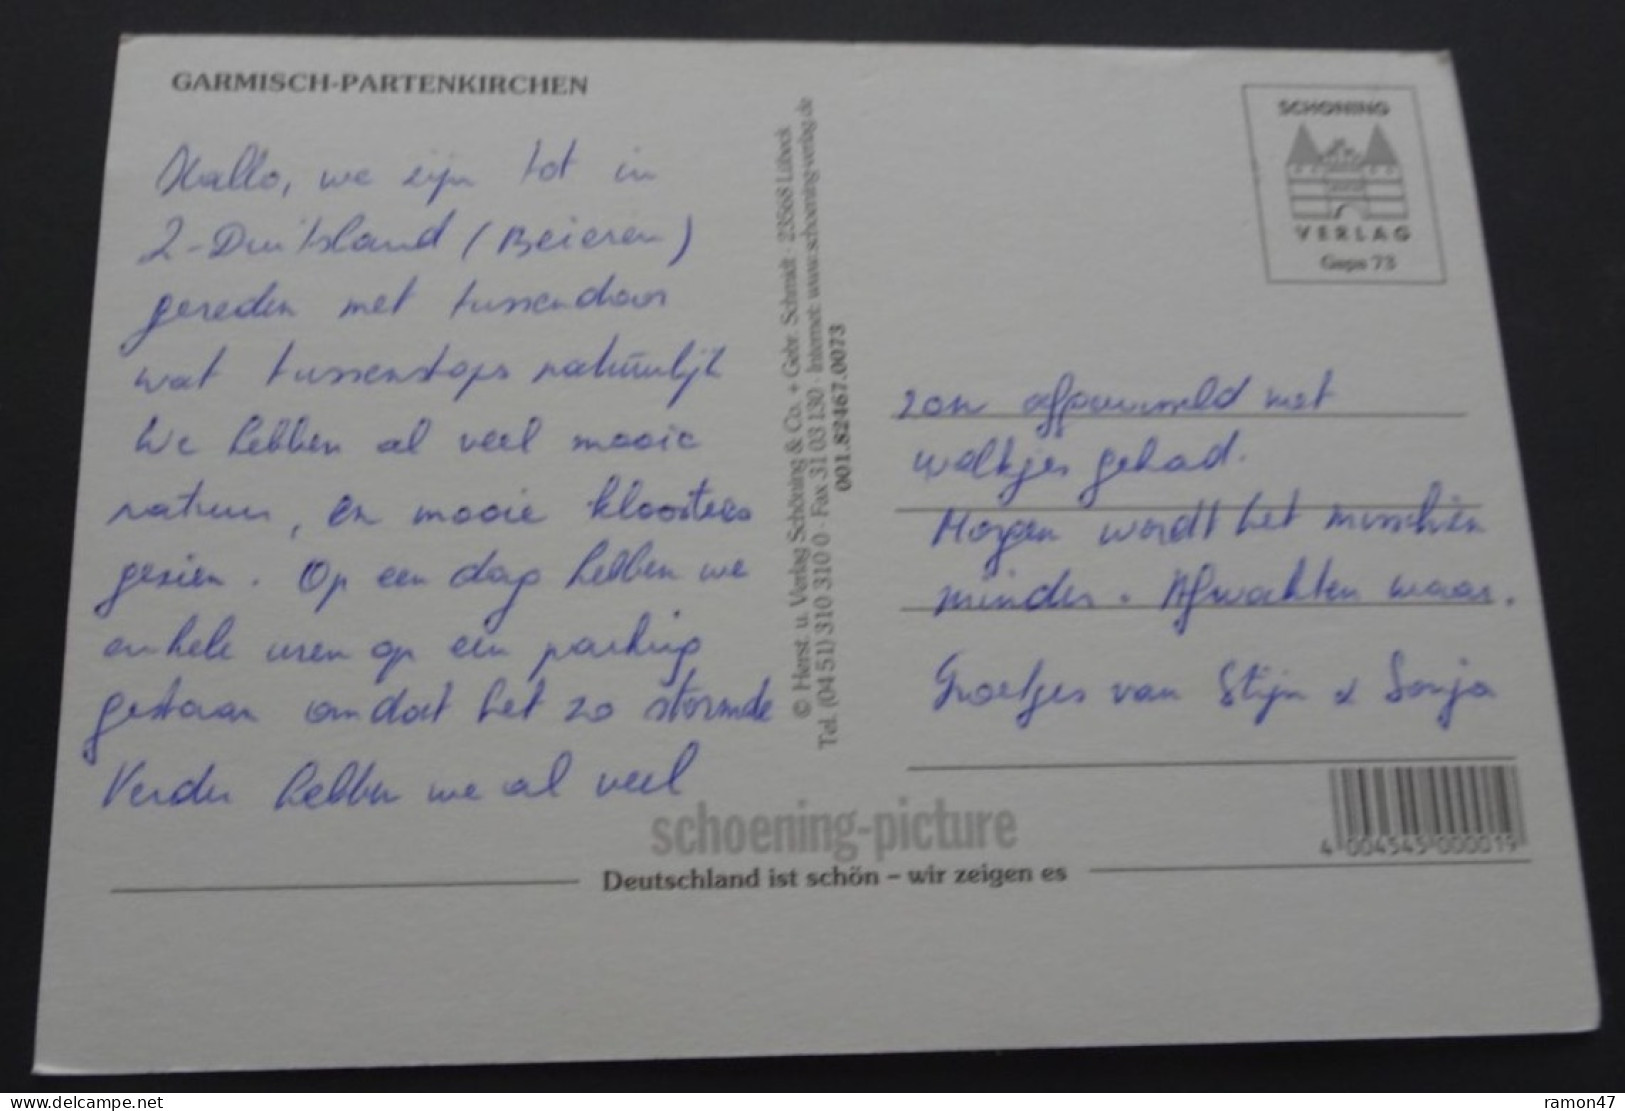 GARMISCH-PARTENKIRCHEN
Hallo, we zijn tot in
Z-Duitsland (Beieren)
gereden met tussendoor
wat tussenstops natuurlijk
We hebben al veel mooie
natuur, en mooie kloosters
gezien. Op een dag hebben we
enkele uren op een parking
gestaan omdat het zo stormde
Verder hebben we al veel
© Herst. u. Verlag Schöning & Co. + Gebr. Schmidt · 23568 Lübeck
Tel. (04 51) 310 310 0 · Fax 31 03 130 · Internet: www.schoening-verlag.de
001.82467.0073
SCHÖNING
VERLAG
Gaps 73
zon afgewisseld met
wolkjes gehad.
Morgen wordt het misschien
minder. Afwachten maar.
Groetjes van Stijn & Sonja
schoening-picture
Deutschland ist schön – wir zeigen es
4 004545 000019
delcampe.net
ramon47